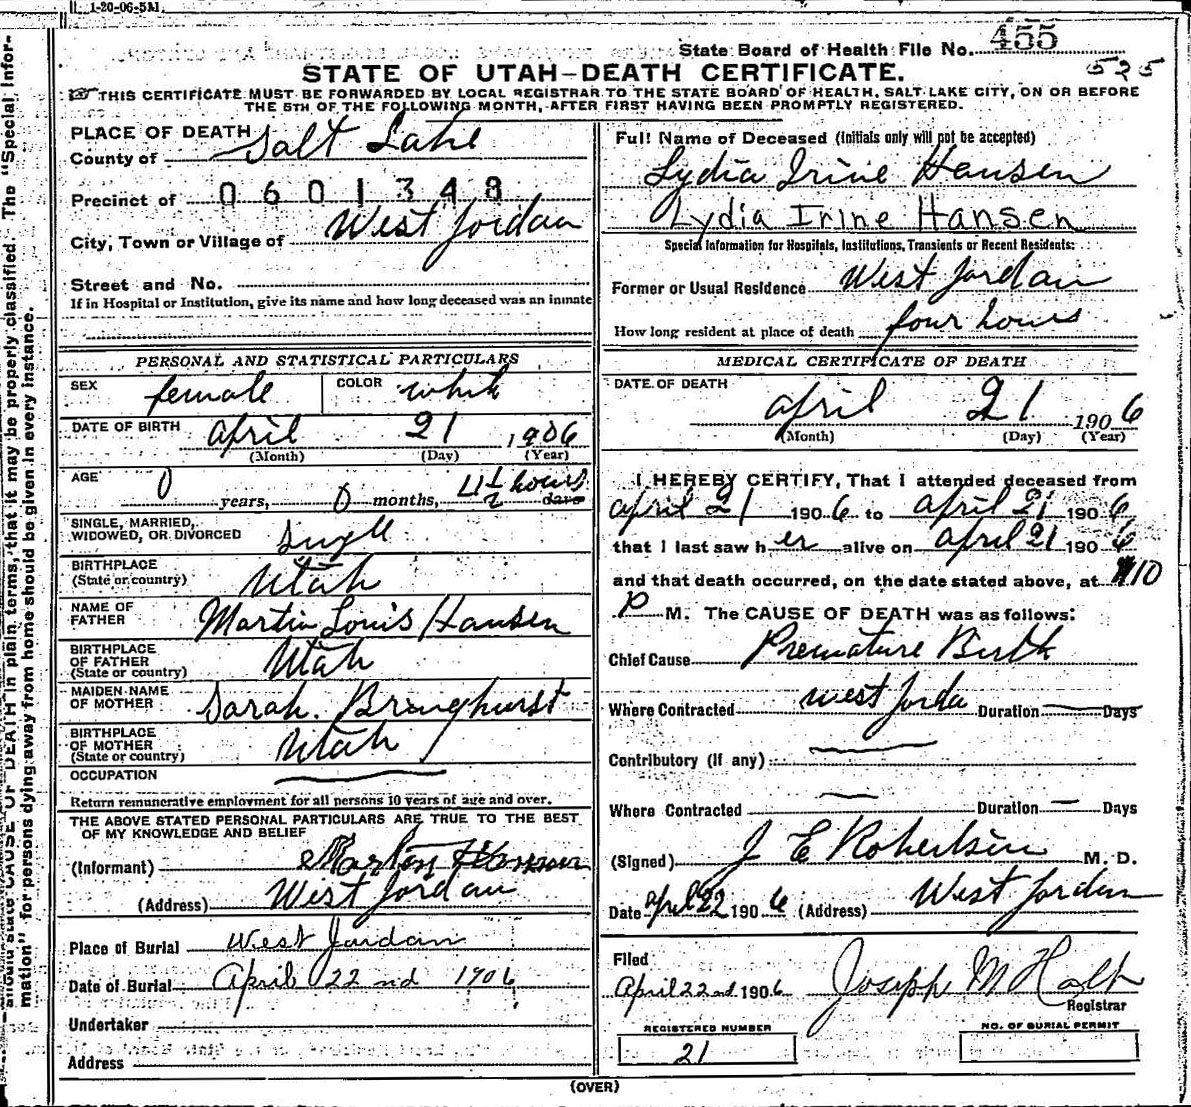 1-20-06-5M.
State Board of Health File No. 455
525
STATE OF UTAH—DEATH CERTIFICATE.
THIS CERTIFICATE MUST BE FORWARDED BY LOCAL REGISTRAR TO THE STATE BOARD OF HEALTH, SALT LAKE CITY, ON OR BEFORE
THE 5TH OF THE FOLLOWING MONTH, AFTER FIRST HAVING BEEN PROMPTLY REGISTERED.
PLACE OF DEATH
County of Salt Lake
Precinct of 0601348
City, Town or Village of West Jordan
Street and No.
If in Hospital or Institution, give its name and how long deceased was an inmate
PERSONAL AND STATISTICAL PARTICULARS
SEX female COLOR white
DATE OF BIRTH april 21, 1906
(Month) (Day) (Year)
AGE 0 years, 0 months, 4 1/2 hours days
SINGLE, MARRIED,
WIDOWED, OR DIVORCED Single
BIRTHPLACE
(State or country) Utah
NAME OF
FATHER Martin Louis Hansen
BIRTHPLACE
OF FATHER
(State or country) Utah
MAIDEN NAME
OF MOTHER Sarah. Bringhurst
BIRTHPLACE
OF MOTHER
(State or country) Utah
OCCUPATION
Return remunerative employment for all persons 10 years of age and over.
THE ABOVE STATED PERSONAL PARTICULARS ARE TRUE TO THE BEST
OF MY KNOWLEDGE AND BELIEF
(Informant) Martin Hansen
(Address) West Jordan
Place of Burial West Jordan
Date of Burial April 22nd 1906
Undertaker
Address
Full Name of Deceased (Initials only will not be accepted)
Lydia Irine Hansen
Lydia Irine Hansen
Special Information for Hospitals, Institutions, Transients or Recent Residents:
Former or Usual Residence West Jordan
How long resident at place of death four hours
MEDICAL CERTIFICATE OF DEATH
DATE OF DEATH
april 21 1906
(Month) (Day) (Year)
I HEREBY CERTIFY, That I attended deceased from
april 21 1906 to april 21 1906
that I last saw her alive on april 21 1906
and that death occurred, on the date stated above, at 10
P M. The CAUSE OF DEATH was as follows:
Chief Cause Premature Birth
Where Contracted west Jorda Duration Days
Contributory (If any)
Where Contracted Duration Days
(Signed) J E Robertson M. D.
Date April 22 1906 (Address) West Jordan
Filed
April 22nd 1906 Joseph M Holt
Registrar
REGISTERED NUMBER
21
NO. OF BURIAL PERMIT
(OVER)
should state CAUSE OF DEATH in plain terms, that it may be properly classified. The "Special Infor-
mation" for persons dying away from home should be given in every instance.